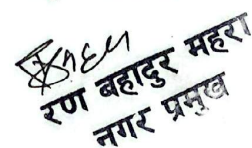 रण बहादुर महरा
नगर प्रमुख